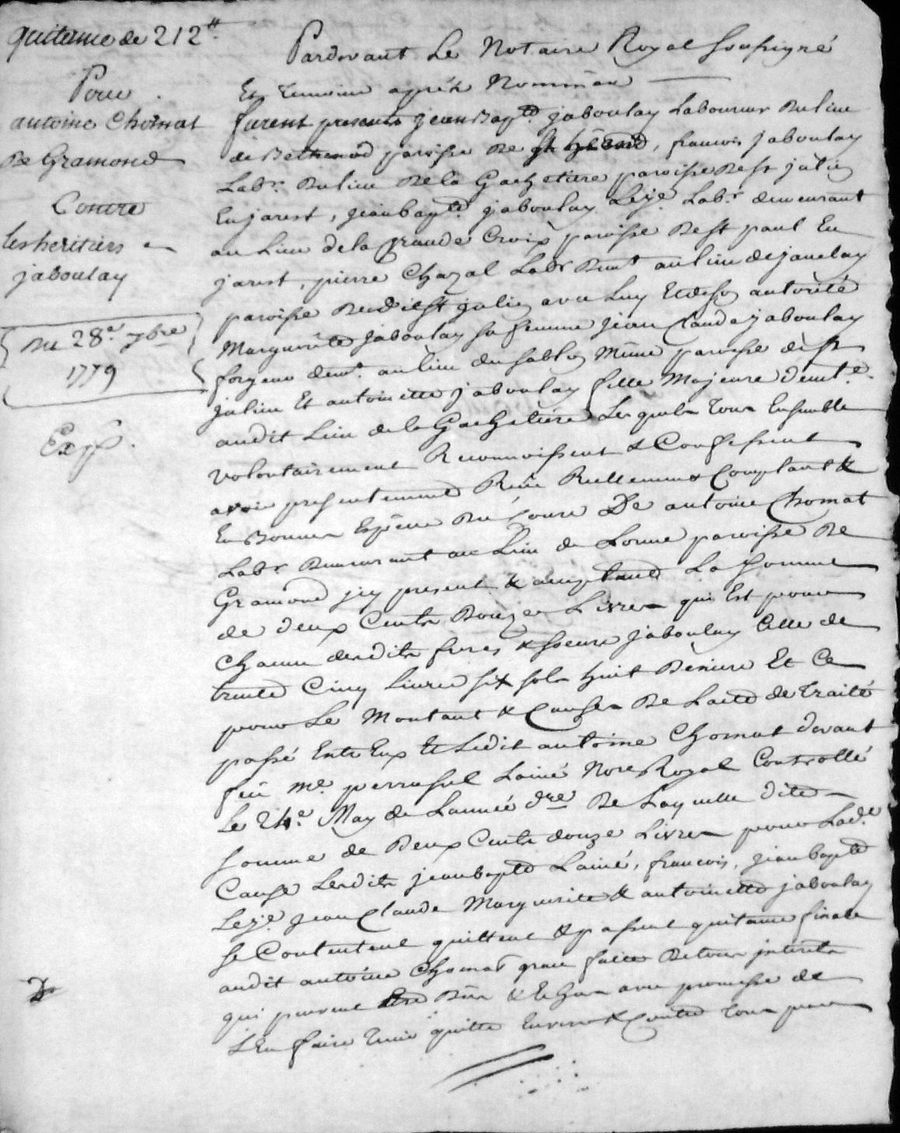 quitance de 212ᵗᵗ
Pour
antoine Chomat
De Gramond
Contre
les heritiers
jaboulay
Du 28ᵉ 7bre
1779
Exp.
Pardevant Le Notaire Royal Soussigné
Et Temoins après Nommés
furent presents jean Bapte. jaboulay Laboureur Du lieu
de Bethenod paroisse De , francois jaboulay
Labr. Du lieu De la Gachetiere paroisse De St julien
En jarest, jean bapte. jaboulay Leje Labr. demeurant
au Lieu de la grande Croix paroisse De St paul En
jarest, pierre Chazal Labr Dmt au lieu de javelay
paroisse Dudit St julien avec Luy Et de son autorité
Marguerite jaboulay sa femme jean Claude jaboulay
forgeur demt. au lieu du sablon Même paroisse de St
julien Et antoinette jaboulay fille Majeure demte.
audit Lieu de la Gachetiere Lesquels Tous Ensemble
volontairement Reconnoissent & Confessent
avoir presentement Reçu Reellement Comptant &
En Bonnes Espèces Du Cours De antoine Chomat
Labr Demeurant au Lieu de Lorme paroisse De
Gramond jcy present & acceptant La somme
de deux Cents Douze Livres qui Est pour
Chacun desdits freres & soeurs jaboulay Celle de
trente Cinq Livres six sols huit Deniers Et Ce
pour Le Montant & Causes De L'acte de Traité
passé Entr'Eux Et Ledit antoine Chomat devant
feu me. perrussel Lainé Nore Royal Controllé
Le 24e. May de L'année dre De Laquelle dite
somme de Deux Cents douze Livres pour Lade.
Cause Lesdits jean bapte Lainé, francois, jean bapte
Leje. jean Claude Marguerite & antoinette jaboulay
se Contentent quittent & passent quitance finale
audit antoine Chomat grace faitte De tous jnterets
qui peuvent Etre Dus & Echus avec promesse de
L'En faire Tenir quitte Envers & Contre Tous pour